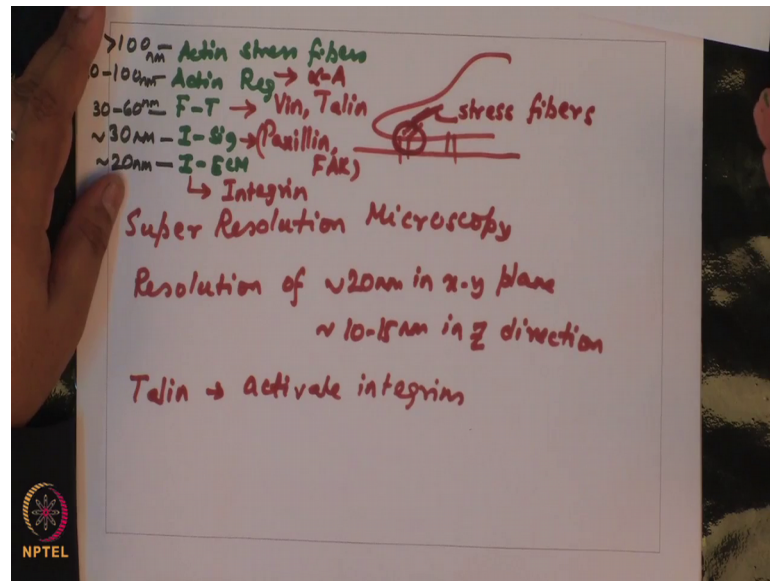 >100nm — Actin stress fibers
0-100nm — Actin Reg → α-A
30-60nm — F-T → Vin, Talin
~30nm — I-Sig → (Paxillin, FAK)
~20nm — I-ECM
↳ Integrin
stress fibers
Super Resolution Microscopy
Resolution of ~20nm in x-y plane
~10-15nm in Z direction
Talin → activate integrins
NPTEL